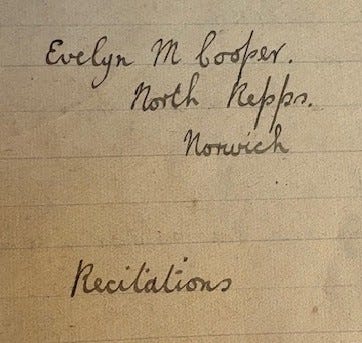 Evelyn M Cooper.
North Repps.
Norwich
Recitations